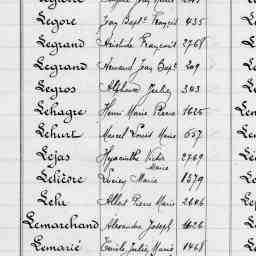 Legore Jean Bapte François 435
Legrand Aristide François 2768
Legrand Armand Jean Bapte 209
Legros Alphonse Julien 303
Lehagre Henri Marie Pierre 1625
Lehurt Marcel Louis Marie 557
Lejas Hyacinthe Victor Marie 2769
Lelièvre Lucien Marie 1279
Lelu Albert Pierre Marie 2606
Lemarchand Alexandre Joseph 1626
Lemarié Emile Julien Marie 1468